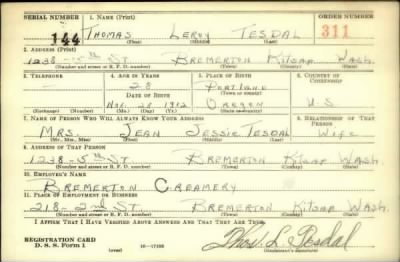 SERIAL NUMBER 1. NAME (Print) ORDER NUMBER
144 THOMAS LEROY TESDAL 311
(First) (Middle) (Last)
2. ADDRESS (Print)
1238 - 5th ST. BREMERTON KITSAP WASH.
(Number and street or R. F. D. number) (Town) (County) (State)
3. TELEPHONE 4. AGE IN YEARS 5. PLACE OF BIRTH 6. COUNTRY OF CITIZENSHIP
— 28 PORTLAND
DATE OF BIRTH (Town or county)
Nov. 28 1912 OREGON U S
(Exchange) (Number) (Mo.) (Day) (Yr.) (State or country)
7. NAME OF PERSON WHO WILL ALWAYS KNOW YOUR ADDRESS 8. RELATIONSHIP OF THAT PERSON
MRS. JEAN JESSIE TESDAL WIFE
(Mr., Mrs., Miss) (First) (Middle) (Last)
9. ADDRESS OF THAT PERSON
1238 - 5th ST. BREMERTON KITSAP WASH.
(Number and street or R. F. D. number) (Town) (County) (State)
10. EMPLOYER'S NAME
BREMERTON CREAMERY
11. PLACE OF EMPLOYMENT OR BUSINESS
218 - 2nd ST. BREMERTON KITSAP WASH.
(Number and street or R. F. D. number) (Town) (County) (State)
I AFFIRM THAT I HAVE VERIFIED ABOVE ANSWERS AND THAT THEY ARE TRUE.
REGISTRATION CARD
D. S. S. Form 1 (over) 16-17105 Thos. L. Tesdal
(Registrant's signature)